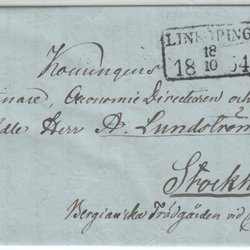 LINKÖPING
18
18 10 54
Konungens
inare, Oeconomie Directoren och
dle Herr A. Lundström
Stockh
Bergianska Trädgården vid